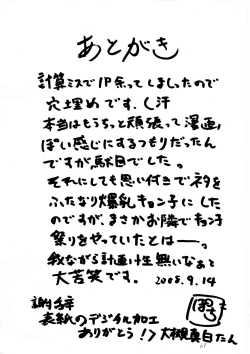 あとがき
計算ミスで1P余ってしまったので
穴埋めです、(汗
本当はもうちっと頑張って漫画、
ぽい感じにするつもりだったん
ですが駄目でした。
それにしても思い付きでネタを
ふたなり爆乳キョン子にした
のですが、まさかお隣でキョン子
祭りをやっていたとは―。
我ながら計画性無いなぁと
大苦笑です。 2008.9.14
謝辞
表紙のデジタル加工
ありがとう!>大槻真白たん